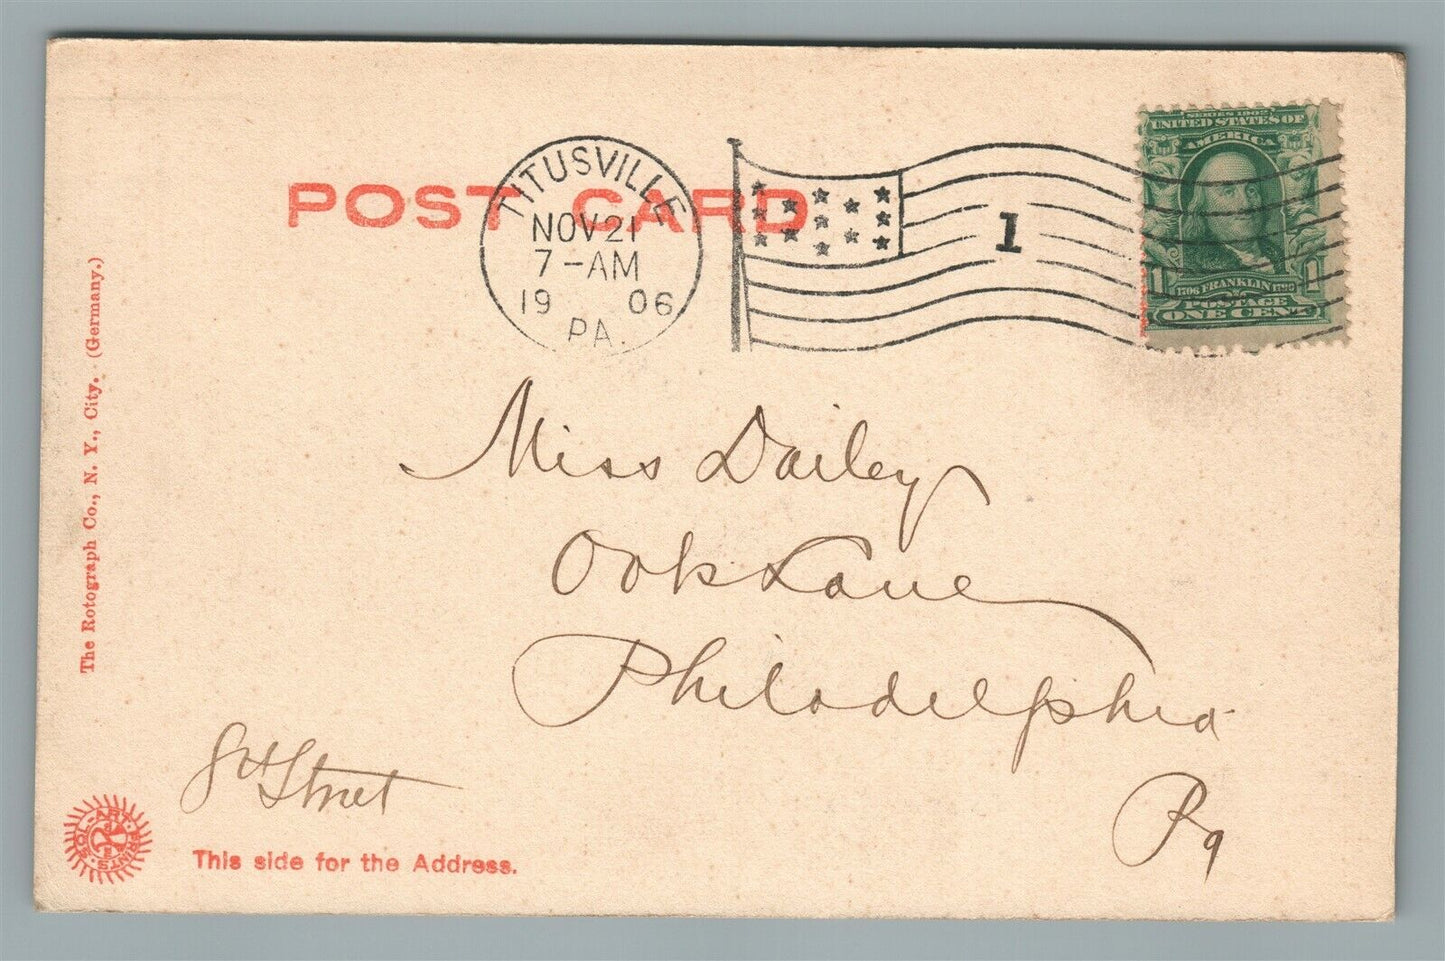 POST CARD
TITUSVILLE
NOV 21
7-AM
1906
PA.
1
SERIES 1902
UNITED STATES OF
AMERICA
1706 FRANKLIN 1790
POSTAGE
ONE CENT
Miss Dailey
Oak Lane
Philadelphia
Pa
8th Street
The Rotograph Co., N. Y., City. (Germany.)
SOL-ART PRINTS
This side for the Address.